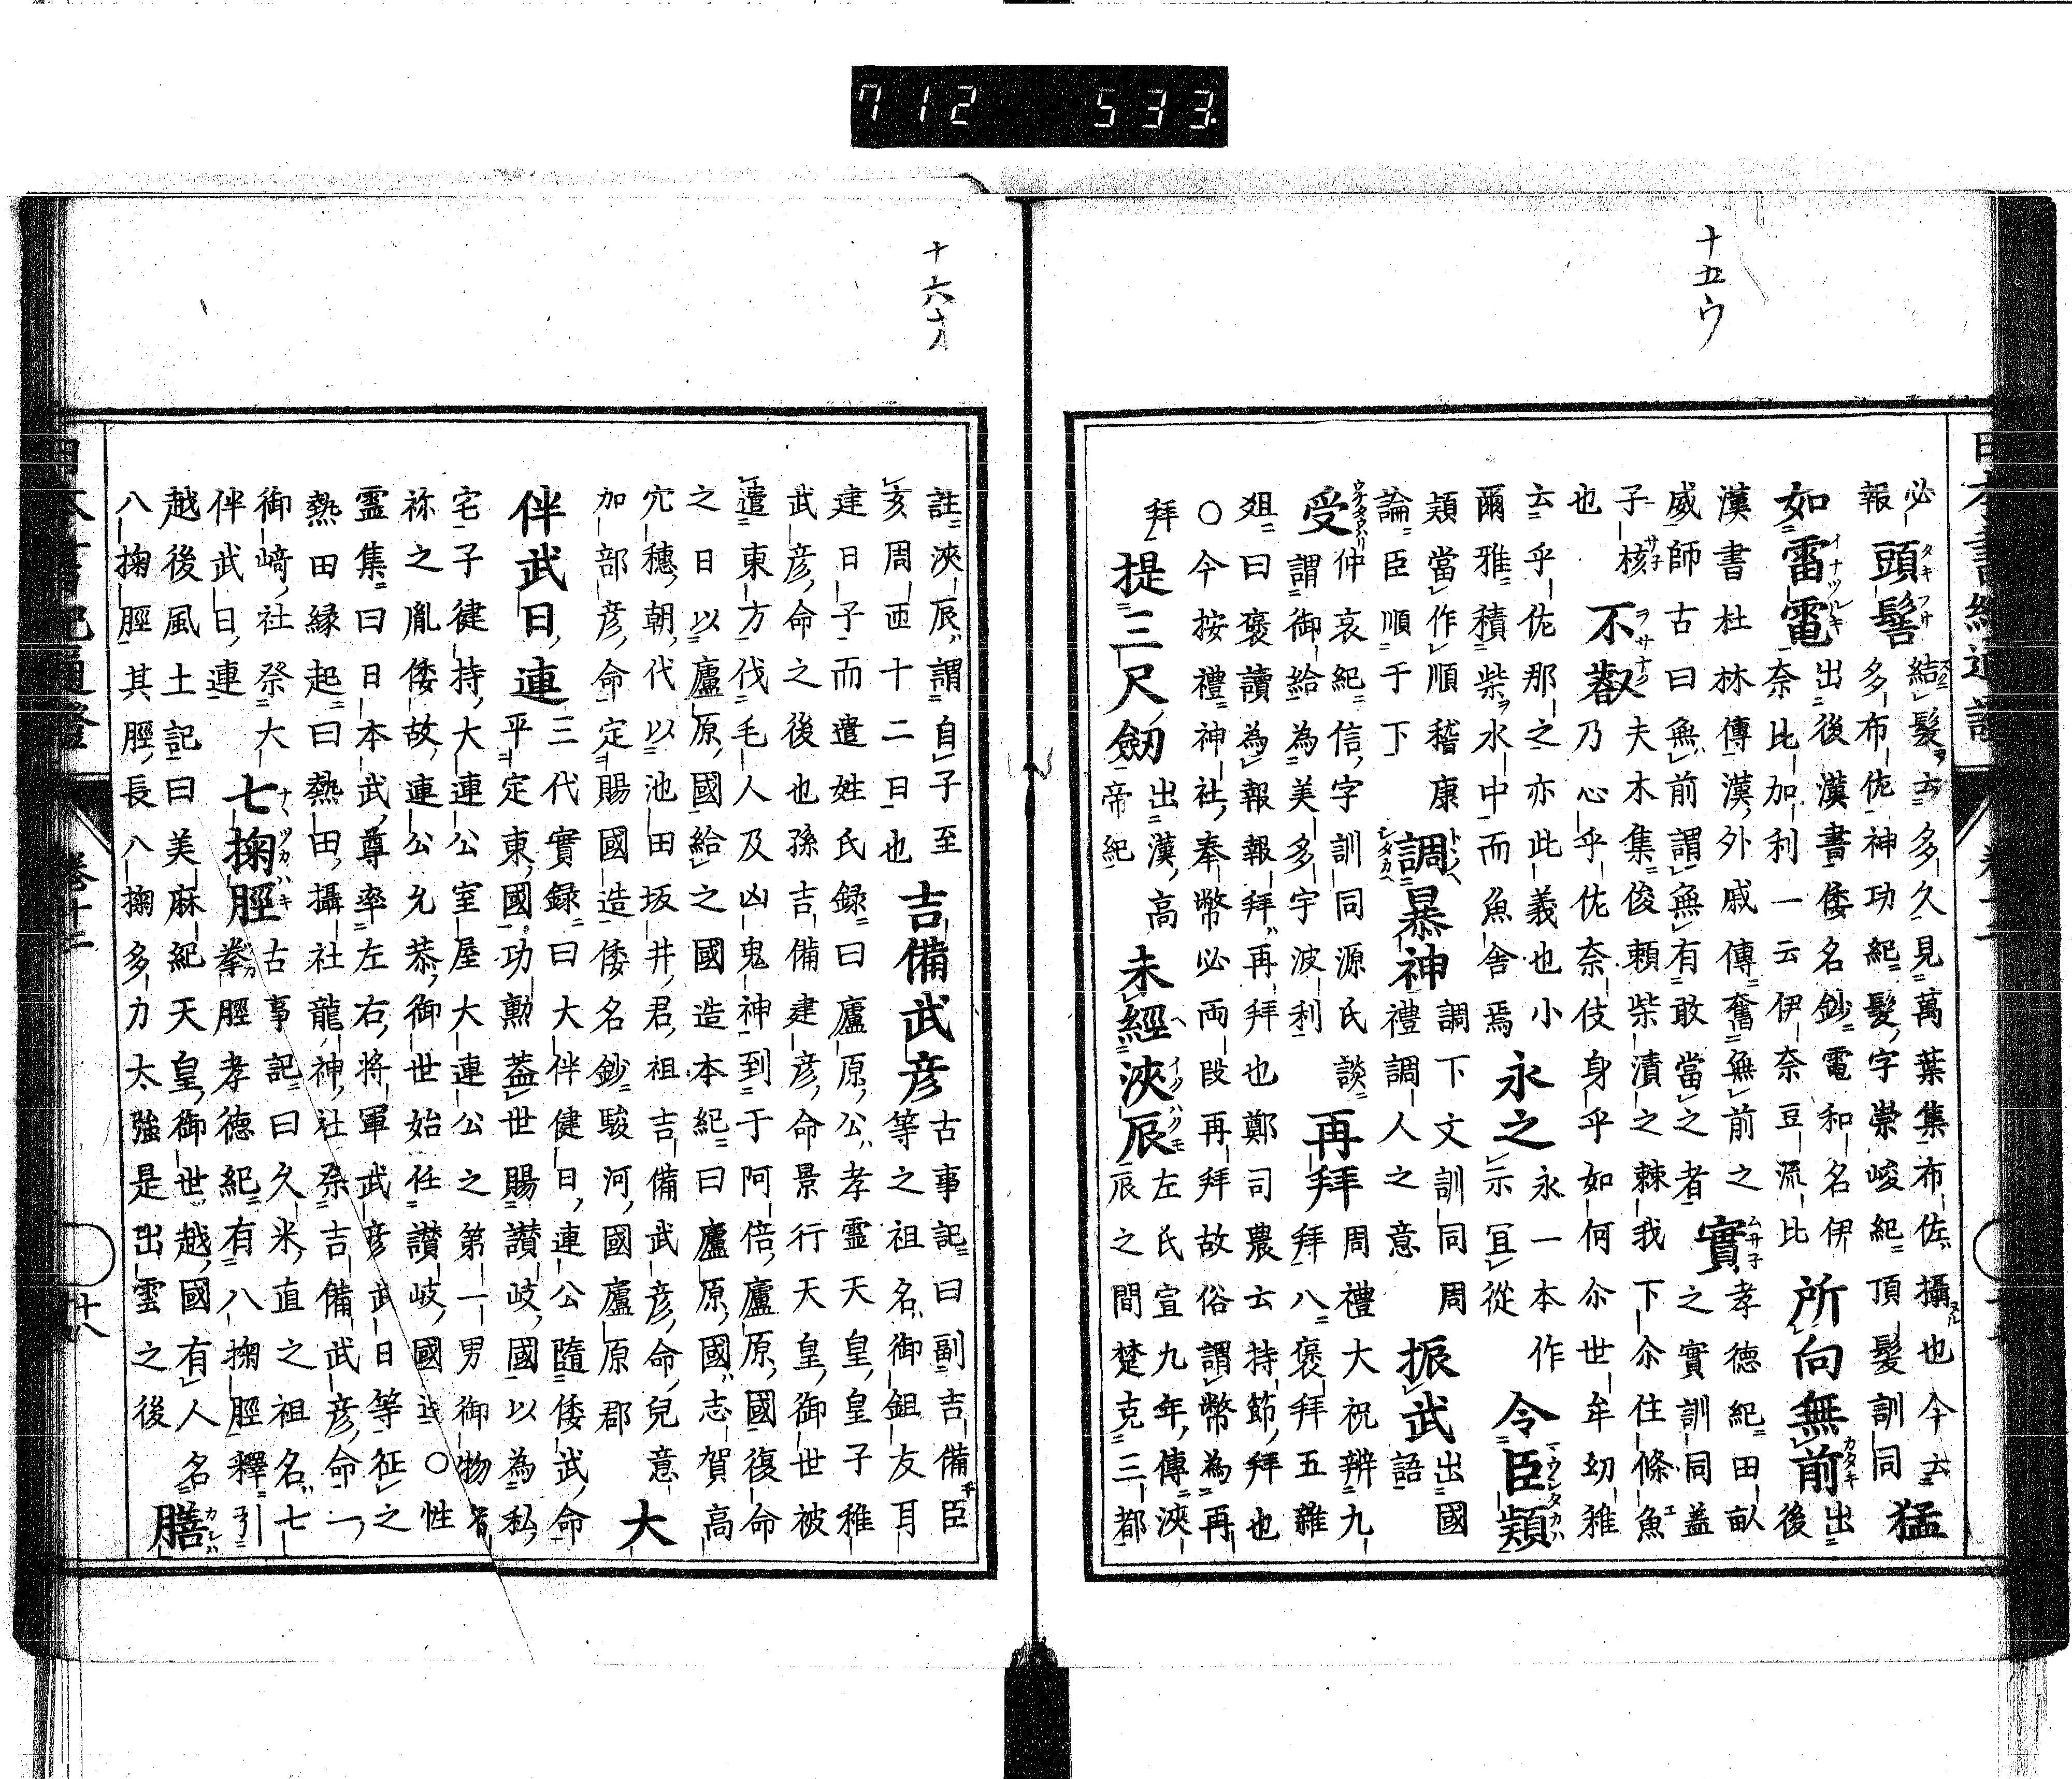 712 533
十五ウ
必報 頭髻 結髮云多久見萬葉集布佐攝也今云多布佐神功紀髮字崇峻紀頂髮訓同 猛
如雷電 出後漢書倭名鈔電和名伊奈比加利一云伊奈豆流比 所向無前 出後
漢書杜林傳漢外戚傳奮無前之威師古曰無前謂無有敢當之者 實 孝德紀田畝之實訓同蓋
子核也 不蔌 夫木集俊頼柴漬之棘我下尒住條魚乃心乎佐奈伎身乎如何尒世牟幼稚
云乎佐那之亦此義也小爾雅積柴水中而魚舎焉 永之 永一本作示冝從 令臣頴
頴當作順稽康論臣順于下 調暴神 調下文訓同周禮調人之意 振武 出國語
受 仲哀紀信字訓同源氏談謂御給為美多宇波利 再拜 周禮大祝辨九拜八褒拜五雜
爼曰褒讀為報報拜再拜也鄭司農云持節拜也○今按禮神社奉幣必兩段再拜故俗謂幣為再
拜 提三尺劒 出漢高帝紀 未經浹辰 左氏宣九年傳浹辰之間楚克三都
十六オ
註浹辰謂自子至亥周匝十二日也 吉備武彦 古事記曰副吉備臣等之祖名御鉏友耳
建日子而遣姓氏録曰廬原公孝靈天皇皇子稚武彦命之後也孫吉備建彦命景行天皇御世被
遣東方伐毛人及凶鬼神到于阿倍廬原國復命之日以廬原國給之國造本紀曰廬原國志賀高
穴穗朝代以池田坂井君祖吉備武彦命兒意加部彦命定賜國造倭名鈔駿河國廬原郡 大
伴武日連 三代實録曰大伴健日連公隨倭武命平定東國功勲蓋世賜讃岐國以為私
宅子健持大連公室屋大連公之第一男御物宿祢之胤倭故連公允恭御世始任讃岐國造○性
靈集曰日本武尊率左右將軍武彦武日等征之熱田縁起曰熱田攝社龍神社祭吉備武彦命一
御﨑社祭大伴武日連 七掬脛 古事記曰久米直之祖名七拳脛孝德紀有八掬脛釋引
越後風土記曰美麻紀天皇御世越國有人名八掬脛其脛長八掬多力太強是出雲之後 膳